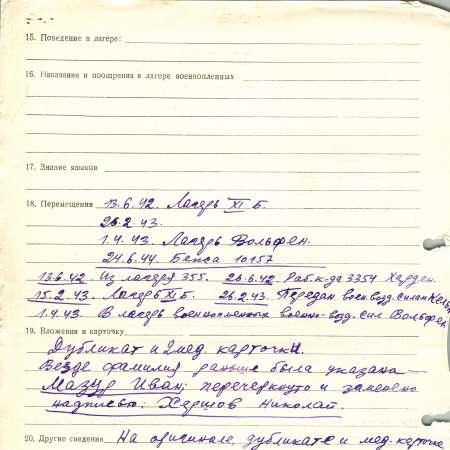 15. Поведение в лагере:
16. Наказания и поощрения в лагере военнопленных
17. Знание языков
18. Перемещения 13.6.42. Лагерь XI Б.
26.2.43.
1.4.43. Лагерь Вольфен.
24.6.44. 10157
13.6.42 Из лагеря 355. 26.6.42. Раб. к-да 3354 Харден.
15.2.43. Лагерь XI Б. 26.2.43. Передан воен. возд. силам
1.4.43. В лагерь военнопленных военно-возд. сил Вольфен
19. Вложения в карточку
Дубликат и 2 мед. карточки.
Везде фамилия раньше была указана
Мазур Иван; перечеркнуто и заменено
надписью: Хершов Николай.
20. Другие сведения На оригинале, дубликате и мед. карточке